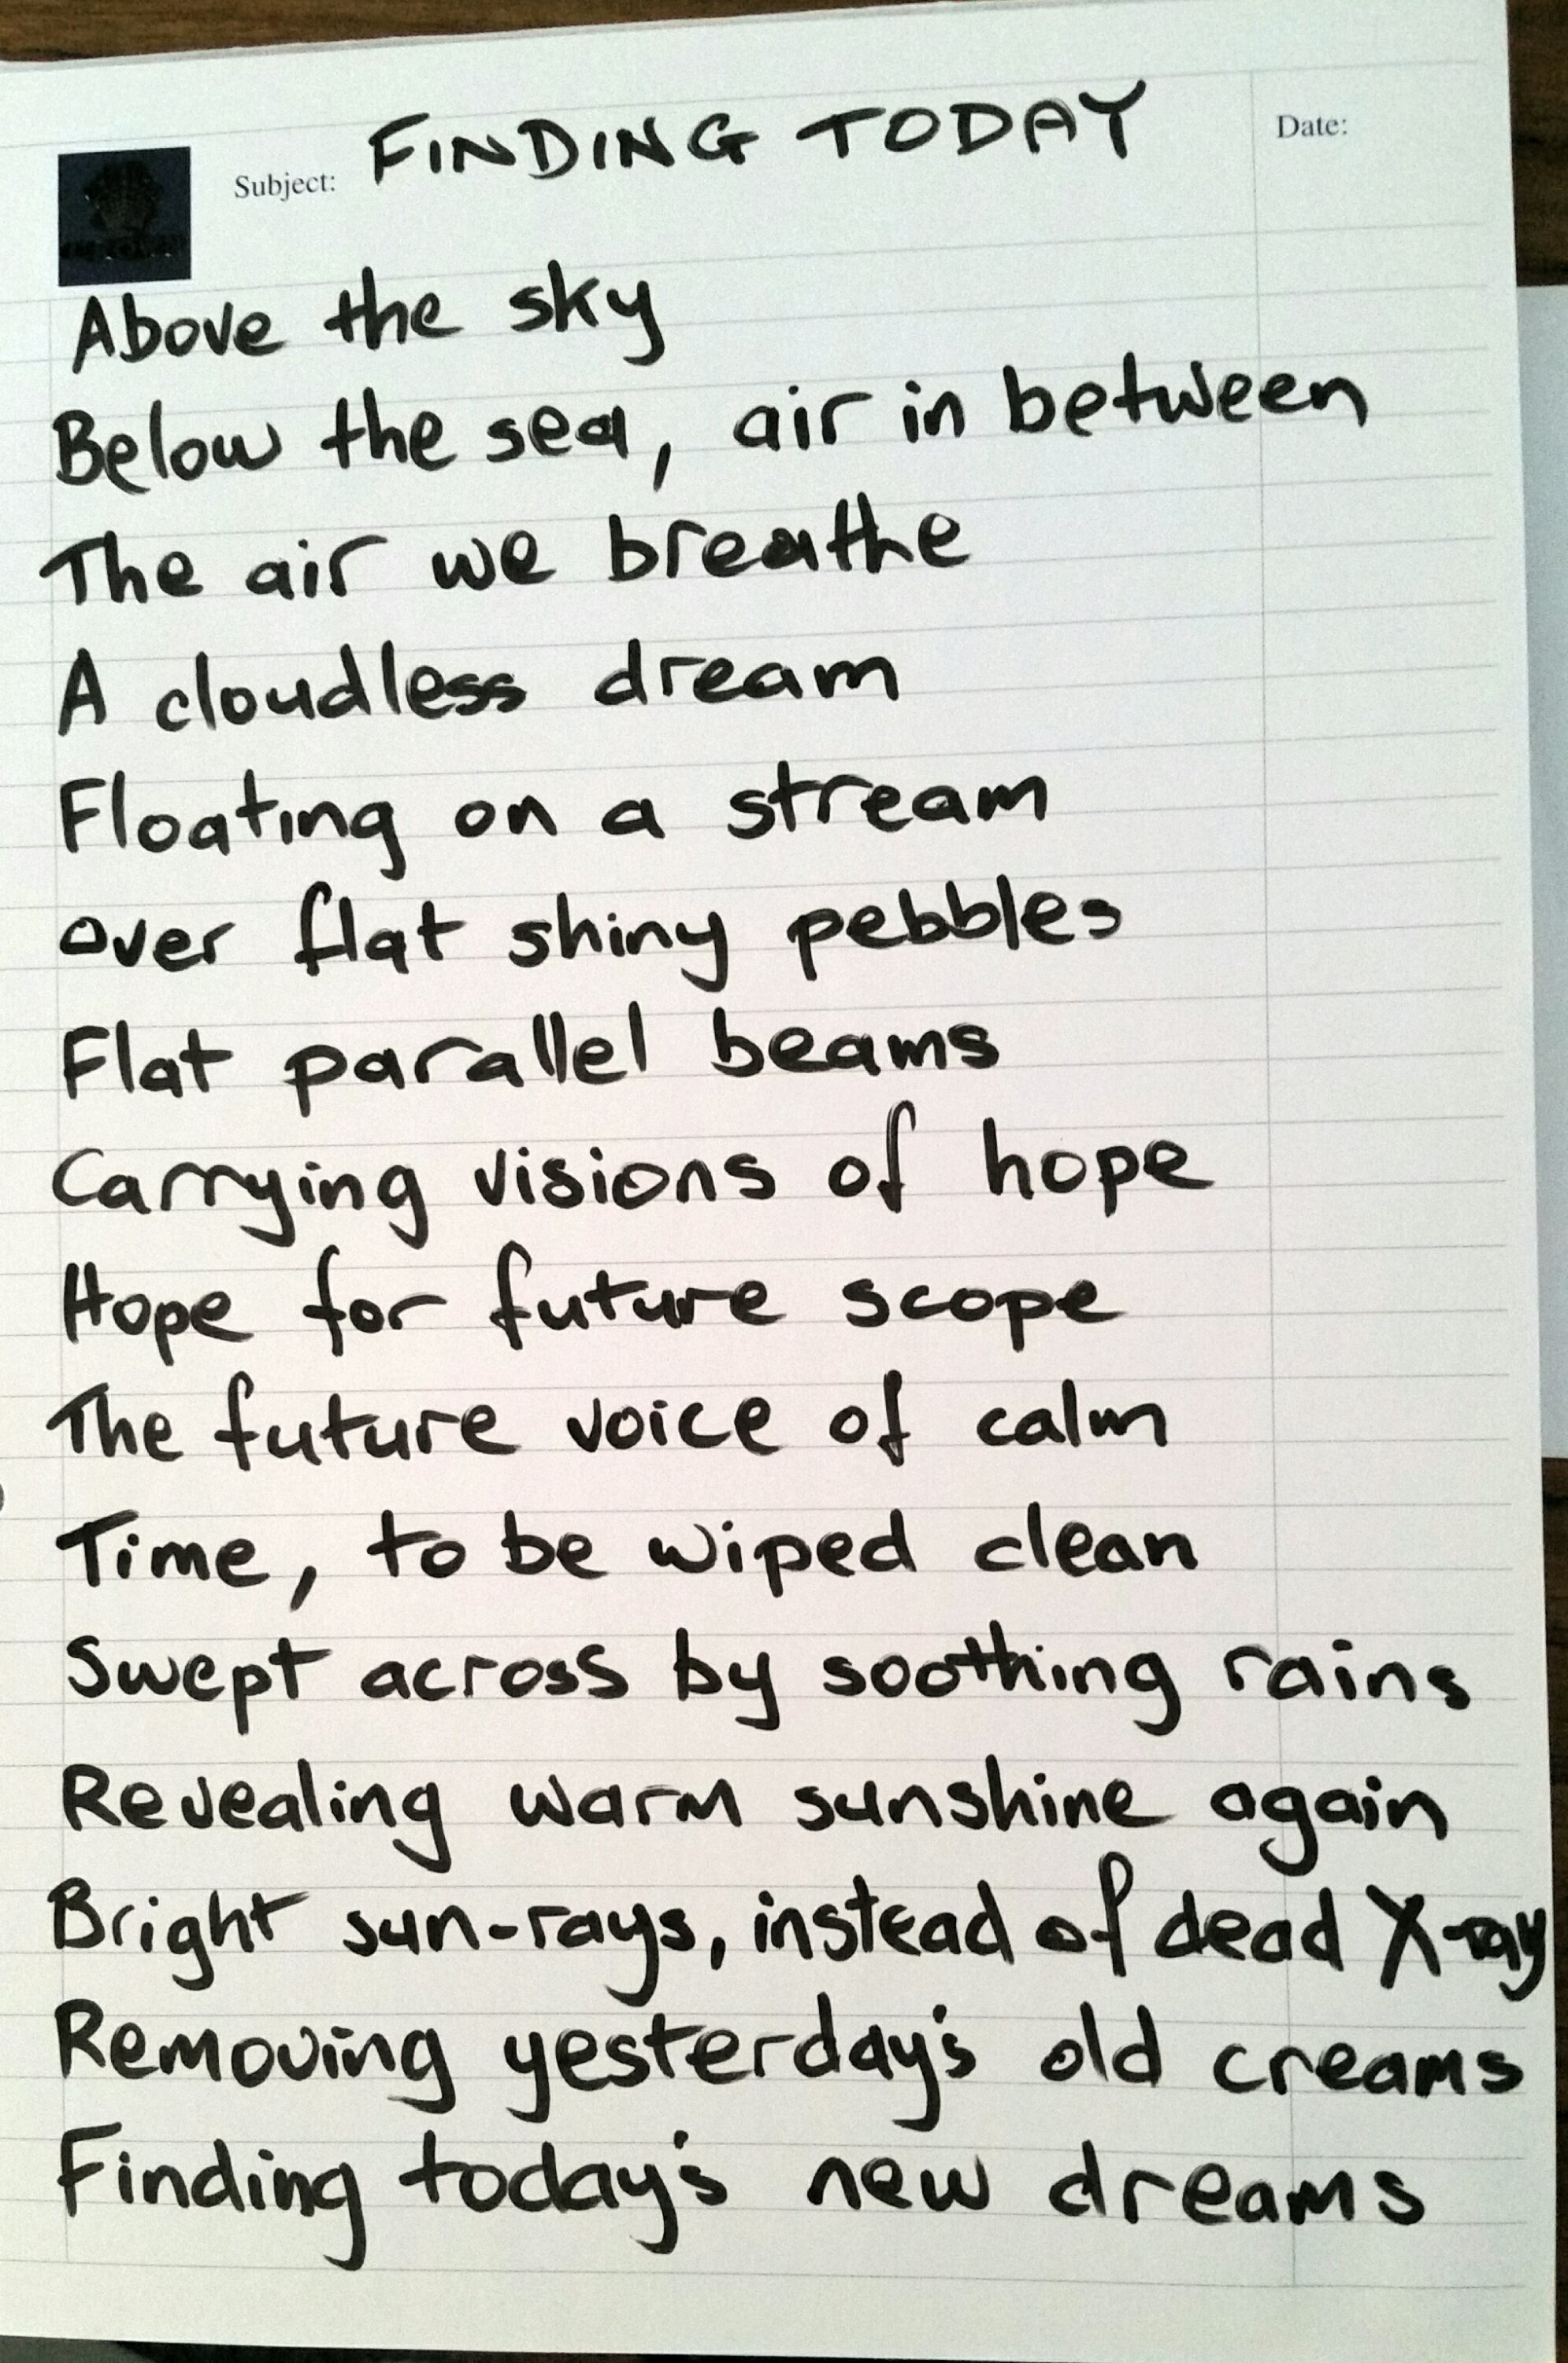 Subject: FINDING TODAY Date:
Above the sky
Below the sea, air in between
The air we breathe
A cloudless dream
Floating on a stream
over flat shiny pebbles
Flat parallel beams
Carrying visions of hope
Hope for future scope
The future voice of calm
Time, to be wiped clean
Swept across by soothing rains
Revealing warm sunshine again
Bright sun-rays, instead of dead X-ray
Removing yesterday's old creams
Finding today's new dreams